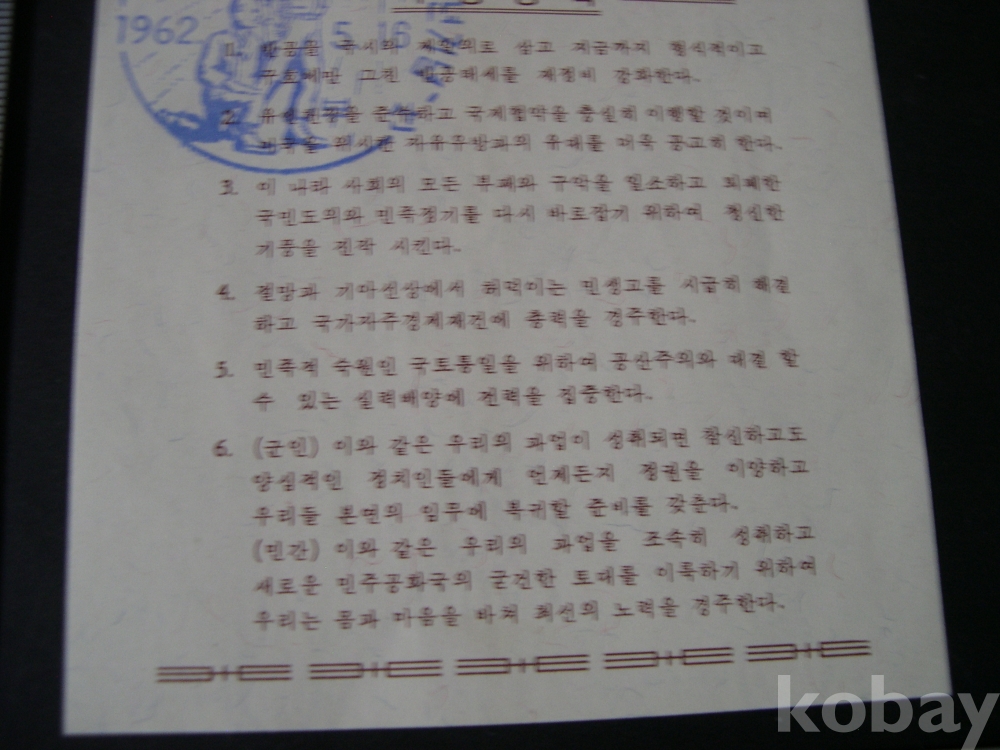 1962 5.16
1. 반공을 국시의 제일의로 삼고 지금까지 형식적이고
구호에만 그친 반공태세를 재정비 강화한다.
2. 유엔헌장을 준수하고 국제협약을 충실히 이행할 것이며
미국을 위시한 자유우방과의 유대를 더욱 공고히 한다.
3. 이 나라 사회의 모든 부패와 구악을 일소하고 퇴폐한
국민도의와 민족정기를 다시 바로잡기 위하여 청신한
기풍을 진작 시킨다.
4. 절망과 기아선상에서 허덕이는 민생고를 시급히 해결
하고 국가자주경제재건에 총력을 경주한다.
5. 민족적 숙원인 국토통일을 위하여 공산주의와 대결 할
수 있는 실력배양에 전력을 집중한다.
6. (군인) 이와 같은 우리의 과업이 성취되면 참신하고도
양심적인 정치인들에게 언제든지 정권을 이양하고
우리들 본연의 임무에 복귀할 준비를 갖춘다.
(민간) 이와 같은 우리의 과업을 조속히 성취하고
새로운 민주공화국의 굳건한 토대를 이룩하기 위하여
우리는 몸과 마음을 바쳐 최선의 노력을 경주한다.
kobay